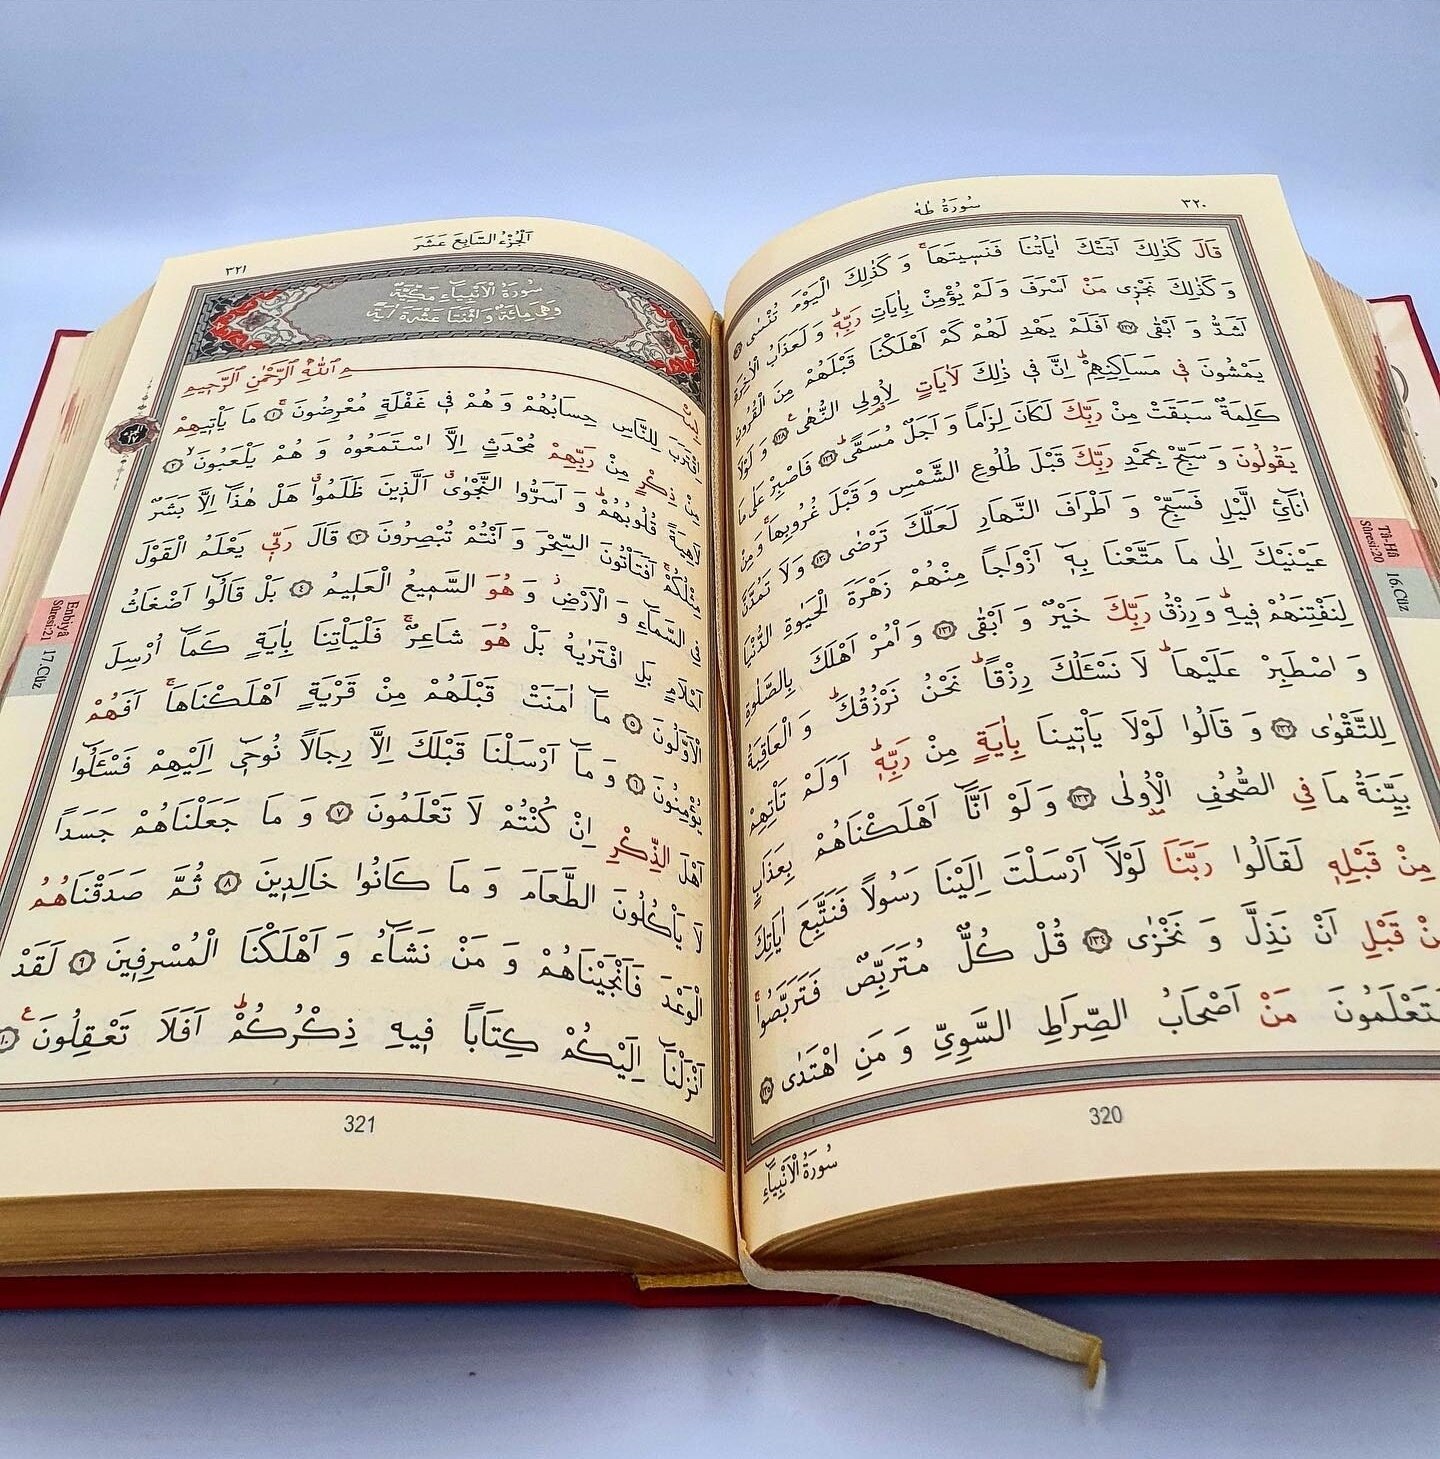 سُورَةُ طٰهٰ
٣٢٠
قَالَ كَذٰلِكَ اَتَتْكَ اٰيَاتُنَا فَنَسِيتَهَاۚ وَ كَذٰلِكَ الْيَوْمَ تُنْسٰى ﴿١٢٦﴾
وَ كَذٰلِكَ نَجْزِى مَنْ اَسْرَفَ وَ لَمْ يُؤْمِنْ بِاٰيَاتِ رَبِّهِۜ وَ لَعَذَابُ الْاٰخِرَةِ
اَشَدُّ وَ اَبْقٰى ﴿١٢٧﴾ اَفَلَمْ يَهْدِ لَهُمْ كَمْ اَهْلَكْنَا قَبْلَهُمْ مِنَ الْقُرُونِ
يَمْشُونَ فِى مَسَاكِنِهِمْۜ اِنَّ فِى ذٰلِكَ لَاٰيَاتٍ لِاُولِى النُّهٰى ﴿١٢٨﴾ وَ لَوْلَا
كَلِمَةٌ سَبَقَتْ مِنْ رَبِّكَ لَكَانَ لِزَاماً وَ اَجَلٌ مُسَمًّىۜ ﴿١٢٩﴾ فَاصْبِرْ عَلٰى مَا
يَقُولُونَ وَ سَبِّحْ بِحَمْدِ رَبِّكَ قَبْلَ طُلُوعِ الشَّمْسِ وَ قَبْلَ غُرُوبِهَاۚ وَ مِنْ
اٰنَآئِ الَّيْلِ فَسَبِّحْ وَ اَطْرَافَ النَّهَارِ لَعَلَّكَ تَرْضٰى ﴿١٣٠﴾ وَ لَا تَمُدَّنَّ
عَيْنَيْكَ اِلٰى مَا مَتَّعْنَا بِهِٓ اَزْوَاجاً مِنْهُمْ زَهْرَةَ الْحَيٰوةِ الدُّنْيَا
لِنَفْتِنَهُمْ فِيهِۜ وَ رِزْقُ رَبِّكَ خَيْرٌ وَ اَبْقٰى ﴿١٣١﴾ وَ اْمُرْ اَهْلَكَ بِالصَّلٰوةِ
وَ اصْطَبِرْ عَلَيْهَاۜ لَا نَسْـَٔلُكَ رِزْقاًۜ نَحْنُ نَرْزُقُكَۜ وَ الْعَاقِبَةُ
لِلتَّقْوٰى ﴿١٣٢﴾ وَ قَالُوا لَوْلَا يَأْتِينَا بِاٰيَةٍ مِنْ رَبِّهِۜ اَوَلَمْ تَأْتِهِمْ
بَيِّنَةُ مَا فِي الصُّحُفِ الْاُولٰى ﴿١٣٣﴾ وَ لَوْ اَنَّٓا اَهْلَكْنَاهُمْ بِعَذَابٍ
مِنْ قَبْلِهِ لَقَالُوا رَبَّنَا لَوْلَٓا اَرْسَلْتَ اِلَيْنَا رَسُولاً فَنَتَّبِعَ اٰيَاتِكَ
مِنْ قَبْلِ اَنْ نَذِلَّ وَ نَخْزٰى ﴿١٣٤﴾ قُلْ كُلٌّ مُتَرَبِّصٌ فَتَرَبَّصُواۚ
فَسَتَعْلَمُونَ مَنْ اَصْحَابُ الصِّرَاطِ السَّوِيِّ وَ مَنِ اهْتَدٰى ﴿١٣٥﴾
320
سُورَةُ الْاَنْبِيَٓاءِ
Tâ-Hâ
Sûresi:20
16.Cüz
اَلْجُزْءُ السَّابِعَ عَشَرَ
٣٢١
سُورَةُ الْاَنْبِيَٓاءِ مَكِّيَّةٌ
وَهِىَ مِائَةٌ وَ اثْنَتَا عَشْرَةَ اٰيَةً
بِسْمِ اللّٰهِ الرَّحْمٰنِ الرَّحِيمِ
اِقْتَرَبَ لِلنَّاسِ حِسَابُهُمْ وَ هُمْ فِى غَفْلَةٍ مُعْرِضُونَۚ ﴿١﴾ مَا يَأْتِيهِمْ
مِنْ ذِكْرٍ مِنْ رَبِّهِمْ مُحْدَثٍ اِلَّا اسْتَمَعُوهُ وَ هُمْ يَلْعَبُونَۙ ﴿٢﴾
لَاهِيَةً قُلُوبُهُمْۜ وَ اَسَرُّوا النَّجْوٰىۗ اَلَّذِينَ ظَلَمُواۗ هَلْ هٰذَٓا اِلَّا بَشَرٌ
مِثْلُكُمْۚ اَفَتَأْتُونَ السِّحْرَ وَ اَنْتُمْ تُبْصِرُونَ ﴿٣﴾ قَالَ رَبِّى يَعْلَمُ الْقَوْلَ
فِى السَّمَٓاءِ وَ الْاَرْضِۘ وَ هُوَ السَّمِيعُ الْعَلِيمُ ﴿٤﴾ بَلْ قَالُٓوا اَضْغَاثُ
اَحْلَامٍ بَلِ افْتَرٰيهُ بَلْ هُوَ شَاعِرٌۚ فَلْيَأْتِنَا بِاٰيَةٍ كَمَٓا اُرْسِلَ
الْاَوَّلُونَ ﴿٥﴾ مَٓا اٰمَنَتْ قَبْلَهُمْ مِنْ قَرْيَةٍ اَهْلَكْنَاهَاۚ اَفَهُمْ
يُؤْمِنُونَ ﴿٦﴾ وَ مَٓا اَرْسَلْنَا قَبْلَكَ اِلَّا رِجَالاً نُوحِٓى اِلَيْهِمْ فَسْـَٔلُٓوا
اَهْلَ الذِّكْرِ اِنْ كُنْتُمْ لَا تَعْلَمُونَ ﴿٧﴾ وَ مَا جَعَلْنَاهُمْ جَسَداً
لَا يَأْكُلُونَ الطَّعَامَ وَ مَا كَانُوا خَالِدِينَ ﴿٨﴾ ثُمَّ صَدَقْنَاهُمُ
الْوَعْدَ فَاَنْجَيْنَاهُمْ وَ مَنْ نَشَٓاءُ وَ اَهْلَكْنَا الْمُسْرِفِينَ ﴿٩﴾ لَقَدْ
اَنْزَلْنَٓا اِلَيْكُمْ كِتَاباً فِيهِ ذِكْرُكُمْۜ اَفَلَا تَعْقِلُونَ۟ ﴿١٠﴾
321
Enbiyâ
Sûresi:21
17.Cüz